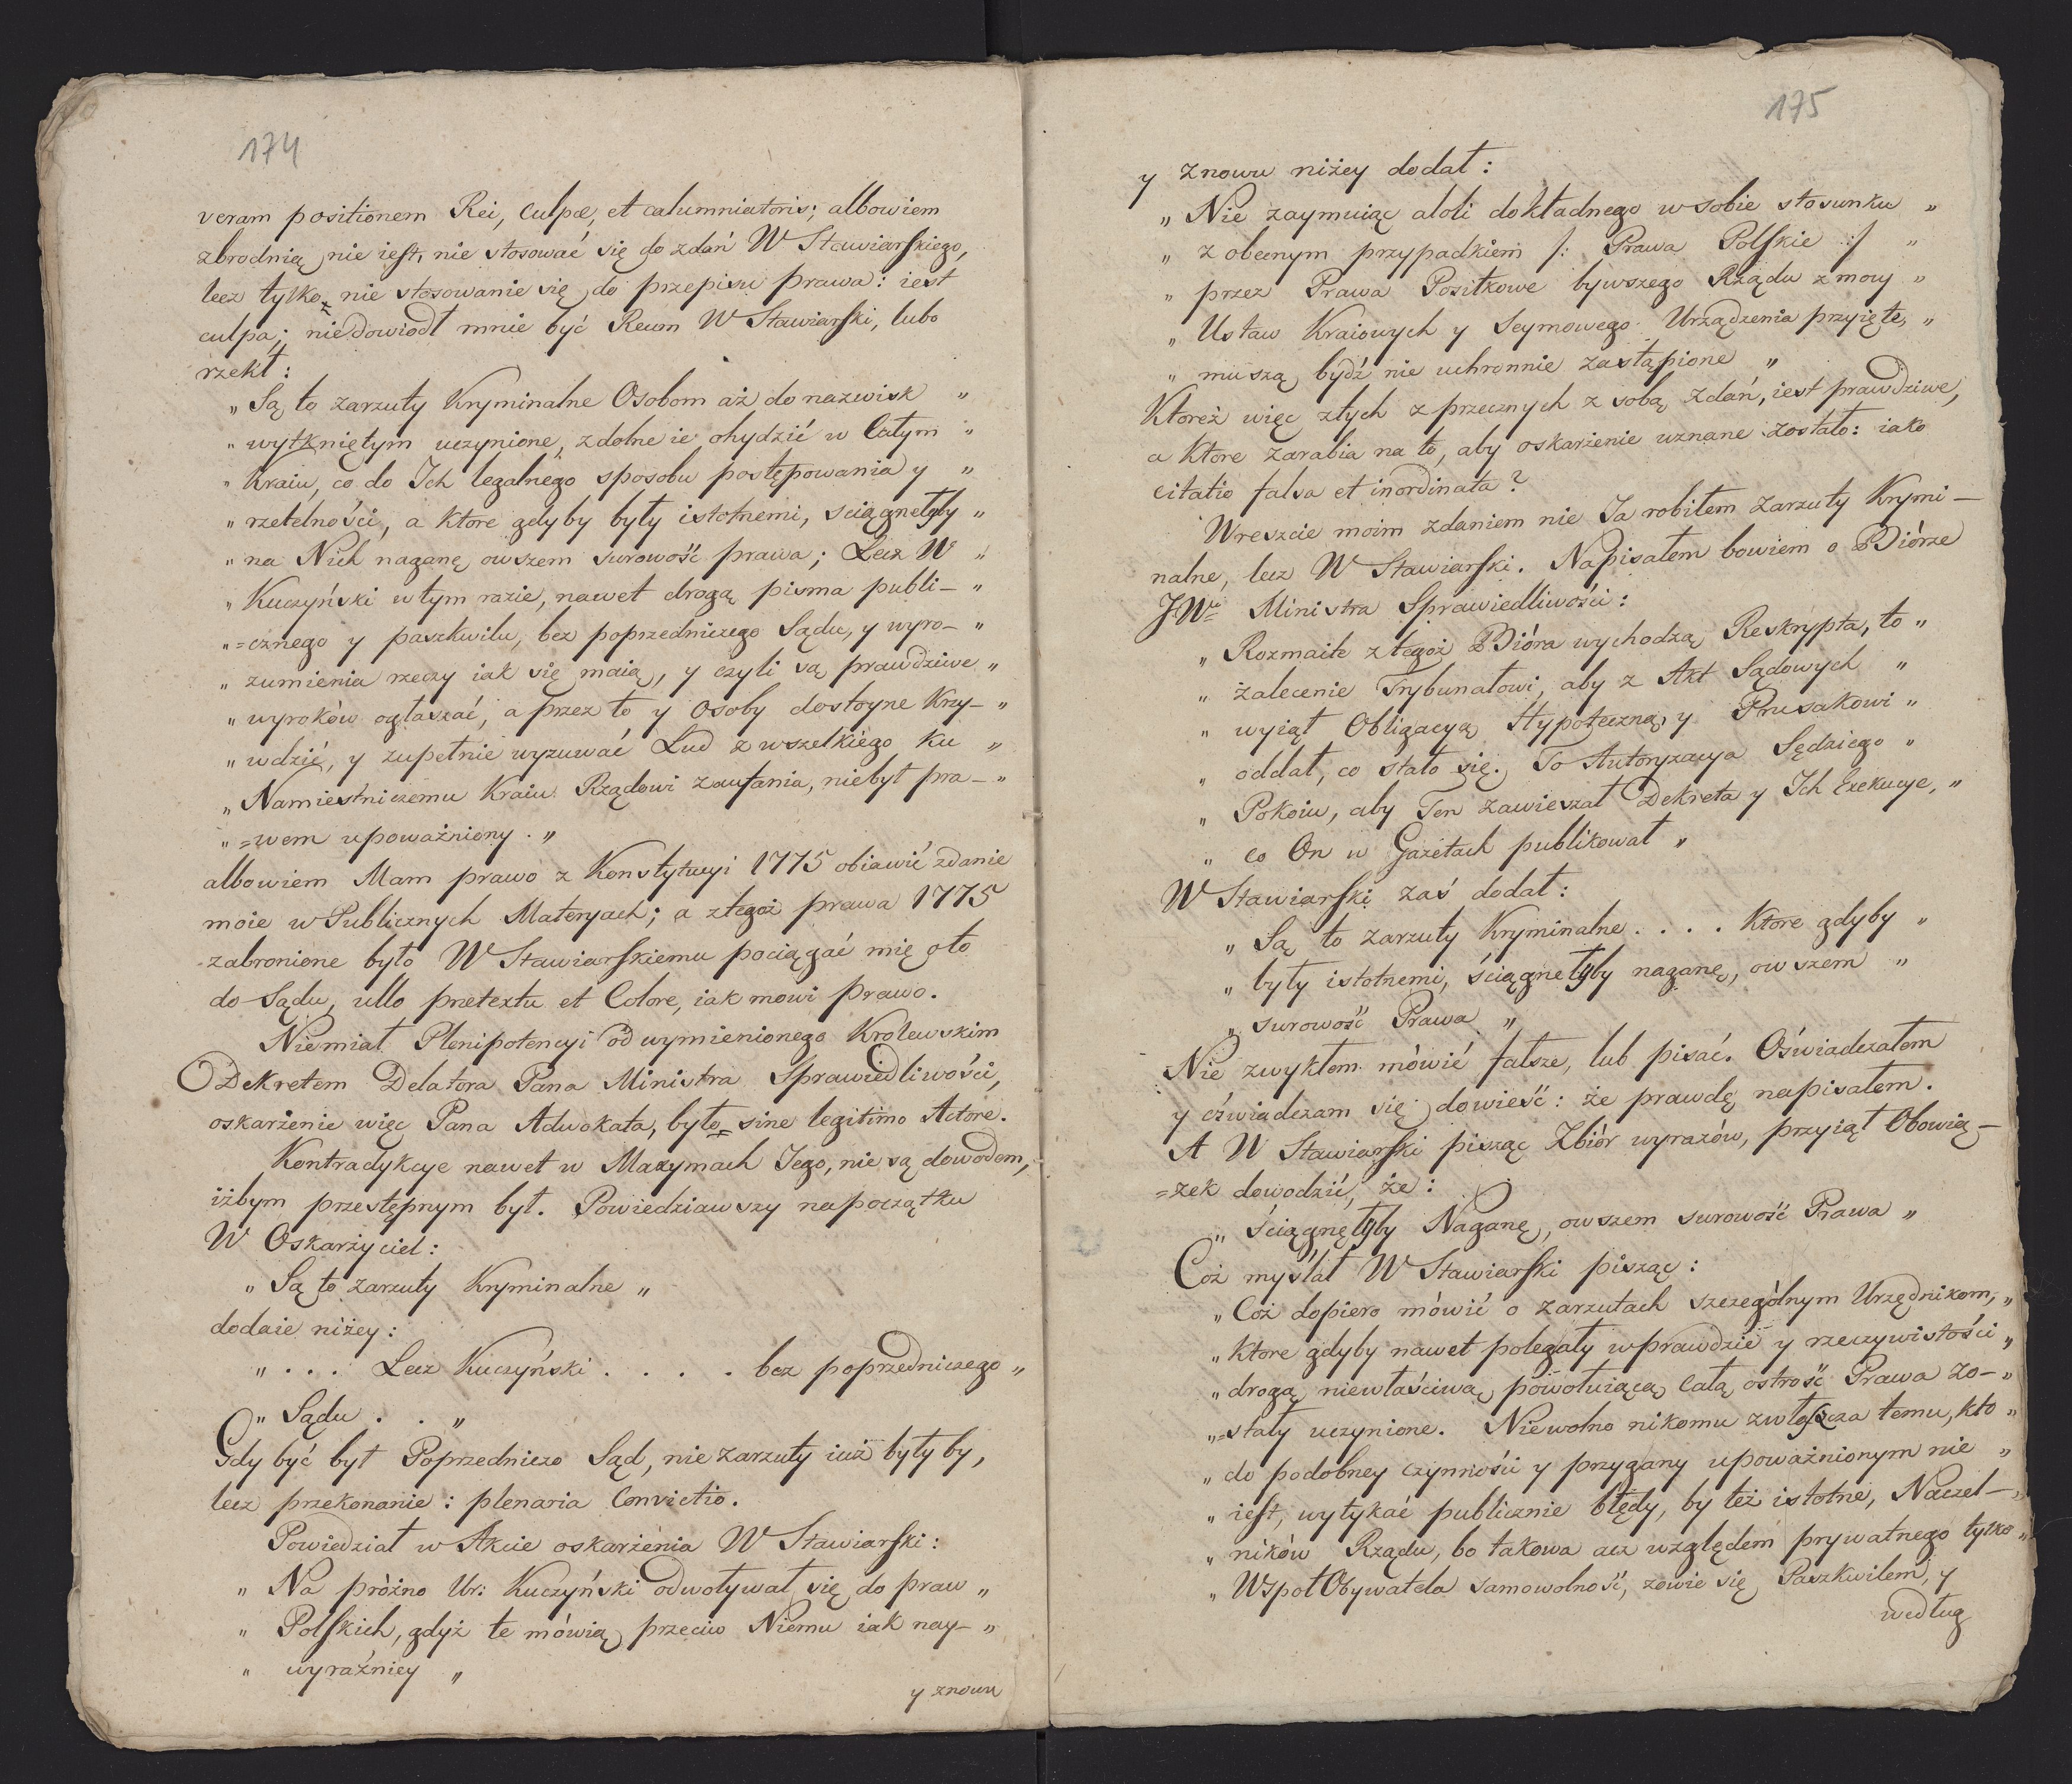 174
veram positionem Rei, culpæ, et calumniatoris; albowiem
zbrodnią nie iest, nie stosować się do zdań W Stawiarskiego,
lecz tylko nie stosowanie się do przepisu prawa: iest
culpa; niedowiodł mnie być Reum W Stawiarski, lubo
rzekł:
„ Są to zarzuty Kryminalne Osobom aż do nazwisk „
„ wytkniętym uczynione, zdolne ie ohydzić w Całym „
„ Kraiu, co do Ich legalnego sposobu postępowania y „
„ rzetelności, a ktore gdyby były istotnemi, sciągnełyby „
„ na Nich naganę owszem surowość prawa; Lecz W „
„ Kuczyński w tym razie, nawet drogą pisma publi- „
„ =cznego y paszkwilu, bez poprzedniczego Sądu, y wyro- „
„ zumienia rzeczy iak się maią, y czyli są prawdziwe „
„ wyroków ogłaszać, a przez to y Osoby dostoyne Krzy- „
„ wdzić, y zupełnie wyzuwać Lud z wszelkiego ku „
„ Namiestniczemu Kraiu Rządowi zaufania, niebył pra- „
„ =wem upoważniony. „
albowiem Mam prawo z Konstytucyi 1775 obiawić zdanie
moie w Publicznych Materyach; a z tegoż prawa 1775
zabronione było W Stawiarskiemu pociągać mię o to
do Sądu, ullo pretextu et Colore, iak mowi prawo.
Niemiał Plenipotencyi od wymienionego Krolewskim
Dekretem Delatora Pana Ministra Sprawiedliwości,
oskarżenie więc Pana Adwokata, było sine legitimo Actore.
Kontradykcye nawet w Maxymach Jego, nie są dowodem,
iżbym przestępnym był. Powiedziawszy na początku
W Oskarżyciel:
„ Są to zarzuty Kryminalne „
dodaie niżey:
„ . . . Lecz Kuczyński . . . . bez poprzedniczego „
„ Sądu . . „
Gdy być był Poprzedniczo Sąd, nie zarzuty iuż byłyby,
lecz przekonanie: plenaria Convictio.
Powiedział w Akcie oskarżenia W Stawiarski:
„ Na próżno Ur: Kuczyński odwoływał się do praw „
„ Polskich, gdyż te mówią przeciw Niemu iak nay- „
„ wyraźniey „
y znowu
175
y znowu niżey dodał:
„ Nie zaymuiąc atoli dokładnego w sobie stosunku „
„ z obecnym przypadkiem /: Prawa Polskie :/ „
„ przez Prawa Posiłkowe bywszego Rządu z mocy „
„ Ustaw Kraiowych y Seymowego Urządzenia przyięte, „
„ muszą bydź nie uchronnie zastąpione „
Ktoreż więc z tych z przecznych z sobą zdań, iest prawdziwe,
a Ktore zarabia na to, aby oskarżenie uznane zostało: iako
citatio falsa et inordinata?
Wreszcie moim zdaniem nie Ja robiłem zarzuty Krymi-
nalne, lecz W Stawiarski. Napisałem bowiem o Biórze
JW Ministra Sprawiedliwości:
„ Rozmaite z tegoż Bióra wychodzą Reskrypta, to „
„ żalecenie Trybunałowi, aby z Akt Sądowych „
„ wyiął Obligacyą Hypoteczną, y Prusakowi „
„ oddał, co stało się. To Autoryzacya Sędziego „
„ Pokoiu, aby Ten zawieszał Dekreta y Ich Exekucye, „
„ co On w Gazetach publikował „
W Stawiarski zaś dodał:
„ Są to zarzuty Kryminalne . . . . Ktore gdyby „
„ były istotnemi, ściągnełyby naganę, owszem „
„ surowość Prawa „
Nie zwykłem mówić fałsze, lub pisać. Oświadczałem
y oświadczam się dowieść: że prawdę napisałem.
A W Stawiarski pisząc Zbiór wyrazów, przyiął Obowią-
=zek dowodzić, że:
„ Ściągnęłyby Naganę, owszem surowość Prawa „
Coż myślał W Stawiarski pisząc:
„ Coż dopiero mówić o zarzutach szczególnym Urzędnikom, „
„ Ktore gdyby nawet polegały w prawdzie y rzeczywistości „
„ drogą niewłaściwą powołuiącą całą ostrość Prawa zo- „
„ =stały uczynione. Niewolno nikomu zwłaszcza temu, kto „
„ do podobney czynności y przygany upoważnionym nie „
„ iest, wytykać publicznie błędy, by też istotne, Naczel- „
„ ników Rządu, bo takowa acz względem prywatnego tylko „
„ WspołObywatela samowolność, zowie się Paszkwilem, y
według